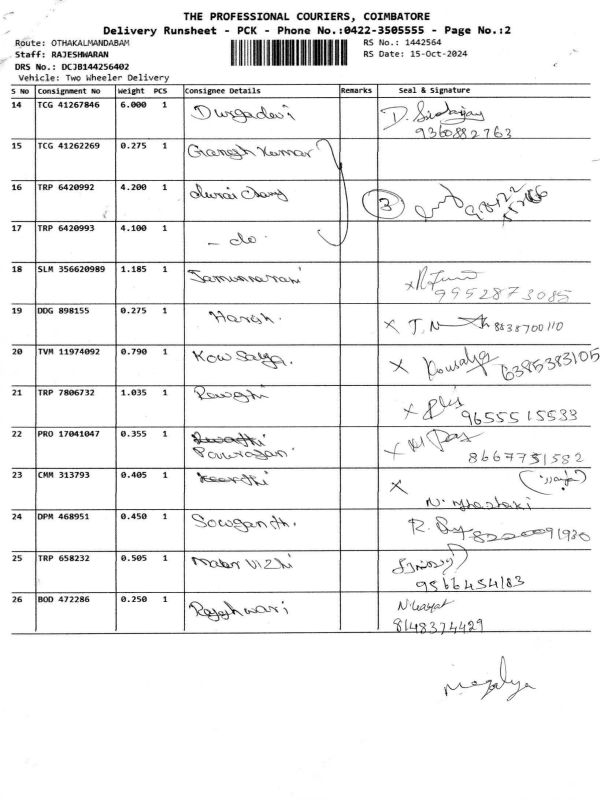 THE PROFESSIONAL COURIERS, COIMBATORE
Delivery Runsheet - PCK - Phone No.:0422-3505555 - Page No.:2
Route: OTHAKALMANDABAM RS No.: 1442564
Staff: RAJESHWARAN RS Date: 15-Oct-2024
DRS No.: DCJB144256402
Vehicle: Two Wheeler Delivery
S No Consignment No Weight PCS Consignee Details Remarks Seal & Signature
14 TCG 41267846 6.000 1 Durgadevi D.
9360882763
15 TCG 41262269 0.275 1 Ganesh Kumar
16 TRP 6420992 4.200 1 3
17 TRP 6420993 4.100 1 - do -
18 SLM 356620989 1.185 1 Jamunarani
9952873085
19 DDG 898155 0.275 1 Harish. x 8838700110
20 TVM 11974092 0.790 1 Kowsalya. x Kousalya 6385383105
21 TRP 7806732 1.035 1 x
9655515533
22 PRO 17041047 0.355 1 x
8667731582
23 CMM 313793 0.405 1 x
24 DPM 468951 0.450 1 Sowganth. R. 8220091930
25 TRP 658232 0.505 1 Malar Vizhi
9566454183
26 BOD 472286 0.250 1 Rajeshwari
8148374429